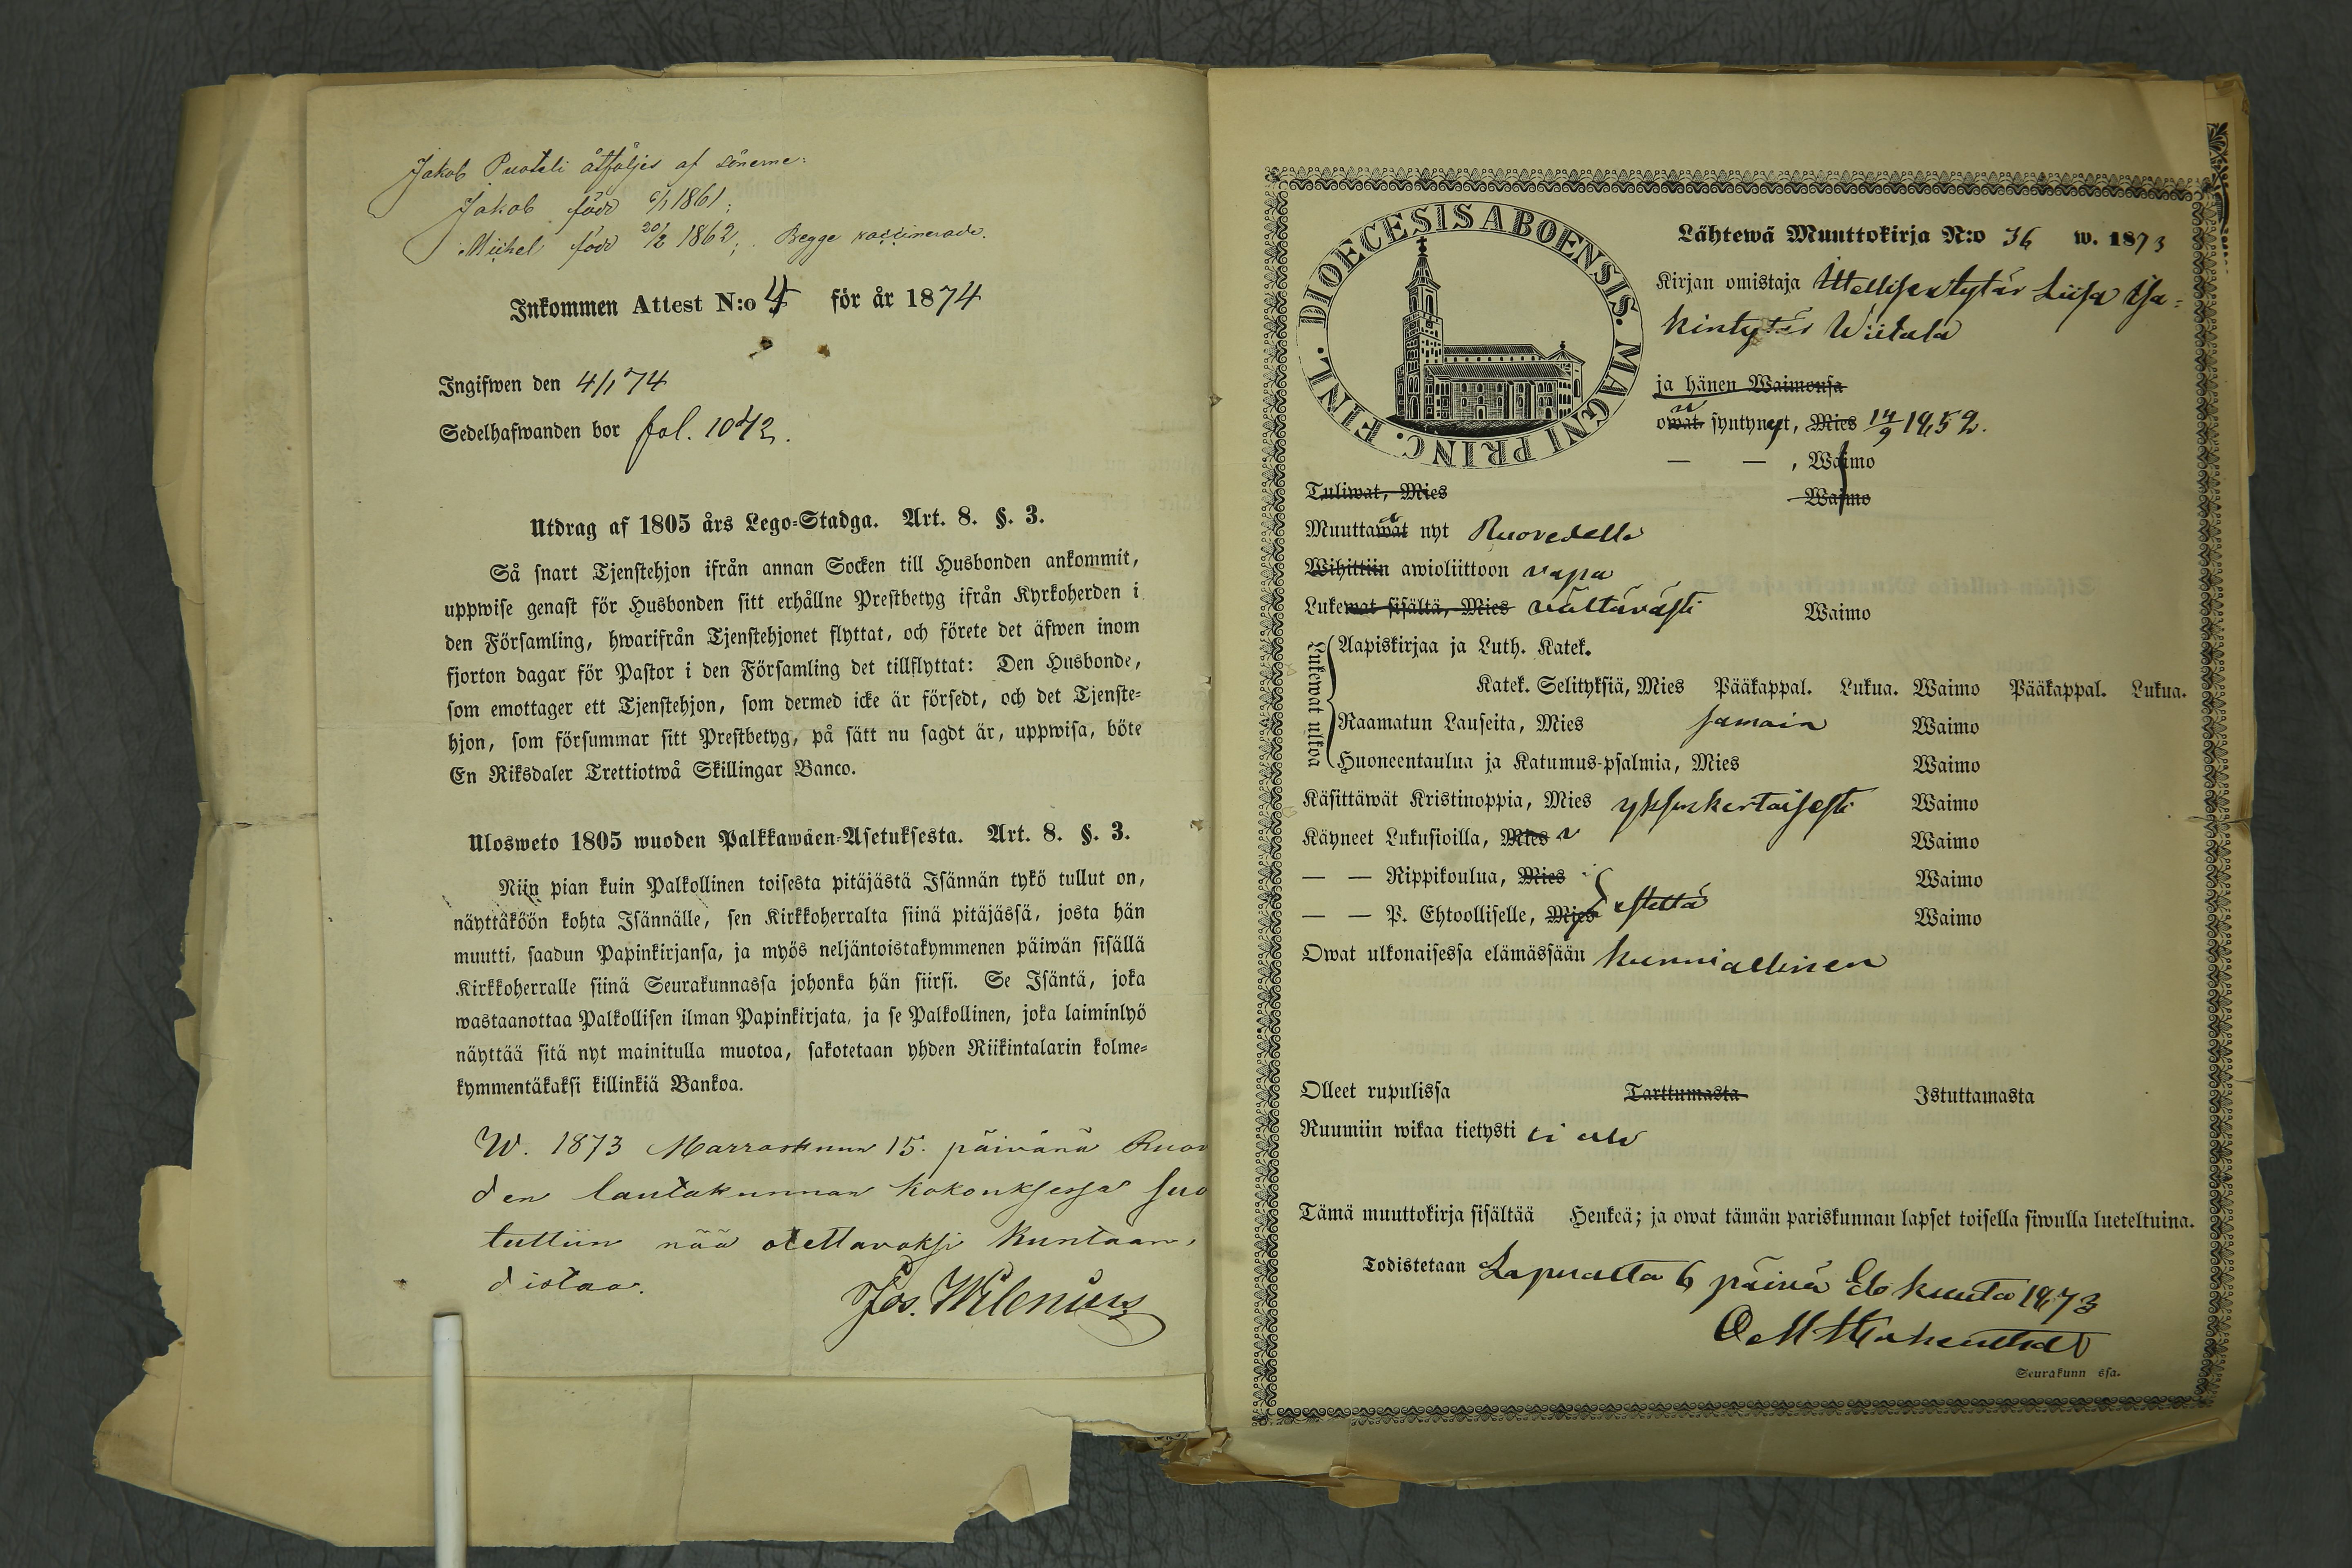 Jakob Puoteli åtföljes af sönerne:
Jakob född 6/1 1861;
Mickel född 20/2 1862; Begge vaccinerade.
Inkommen Attest N:o 4 för år 1874
Ingifwen den 4/1 74
Sedelhafwanden bor fol. 1042.
Utdrag af 1805 års Lego-Stadga. Art. 8. §. 3.
Så snart Tjenstehjon ifrån annan Socken till Husbonden ankommit,
uppwise genast för Husbonden sitt erhållne Prestbetyg ifrån Kyrkoherden i
den Församling, hwarifrån Tjenstehjonet flyttat, och förete det äfwen inom
fjorton dagar för Pastor i den Församling det tillflyttat: Den Husbonde,
som emottager ett Tjenstehjon, som dermed icke är försedt, och det Tjenste-
hjon, som försummar sitt Prestbetyg, på sätt nu sagdt är, uppwisa, böte
En Riksdaler Trettiotwå Skillingar Banco.
Ulosweto 1805 wuoden Palkkawäen-Asetuksesta. Art. 8. §. 3.
Niin pian kuin Palkollinen toisesta pitäjästä Isännän tykö tullut on,
näyttäköön kohta Isännälle, sen Kirkkoherralta siinä pitäjässä, josta hän
muutti, saadun Papinkirjansa, ja myös neljäntoistakymmenen päiwän sisällä
Kirkkoherralle siinä Seurakunnassa johonka hän siirsi. Se Isäntä, joka
wastaanottaa Palkollisen ilman Papinkirjata, ja se Palkollinen, joka laiminlyö
näyttää sitä nyt mainitulla muotoa, sakotetaan yhden Riikintalarin kolme-
kymmentäkaksi killinkiä Bankoa.
W. 1873 Marraskuun 15. päivänä Ruov
den lautakunnan kokouksessa suo
tuttiin nää otettavaksi kuntaan,
distaa.
Jos. Wilenius
DIOECESIS ABOENSIS. MAGNI PRINC. FINL.
Lähtewä Muuttokirja N:o 36 w. 1873
Kirjan omistaja Itellisentytär Liisa Isa-
kintytär Wiitala
ja hänen Waimonsa
owat syntynyt, Mies 14/9 1852.
— — , Waimo
Tuliwat, Mies Waimo
Muuttawat nyt Ruovedelle
Wihittiin awioliittoon vapa
Lukewat sisältä, Mies välttävästi Waimo
Lukewat ulkoa
Aapiskirjaa ja Luth. Katek.
Katek. Selityksiä, Mies Pääkappal. Lukua. Waimo Pääkappal. Lukua.
Raamatun Lauseita, Mies samain Waimo
Huoneentaulua ja Katumus-psalmia, Mies Waimo
Käsittäwät Kristinoppia, Mies yksinkertaisesti Waimo
Käyneet Lukusioilla, Mies Waimo
— — Rippikoulua, Mies Waimo
— — P. Ehtoolliselle, Mies estettä Waimo
Owat ulkonaisessa elämässään kunniallinen
Olleet rupulissa Tarttumasta Istuttamasta
Ruumiin wikaa tietysti ei ole
Tämä muuttokirja sisältää Henkeä; ja owat tämän pariskunnan lapset toisella siwulla lueteltuina.
Todistetaan Lapualta 6 päivä Elokuuta 1873
Seurakunn ssa.